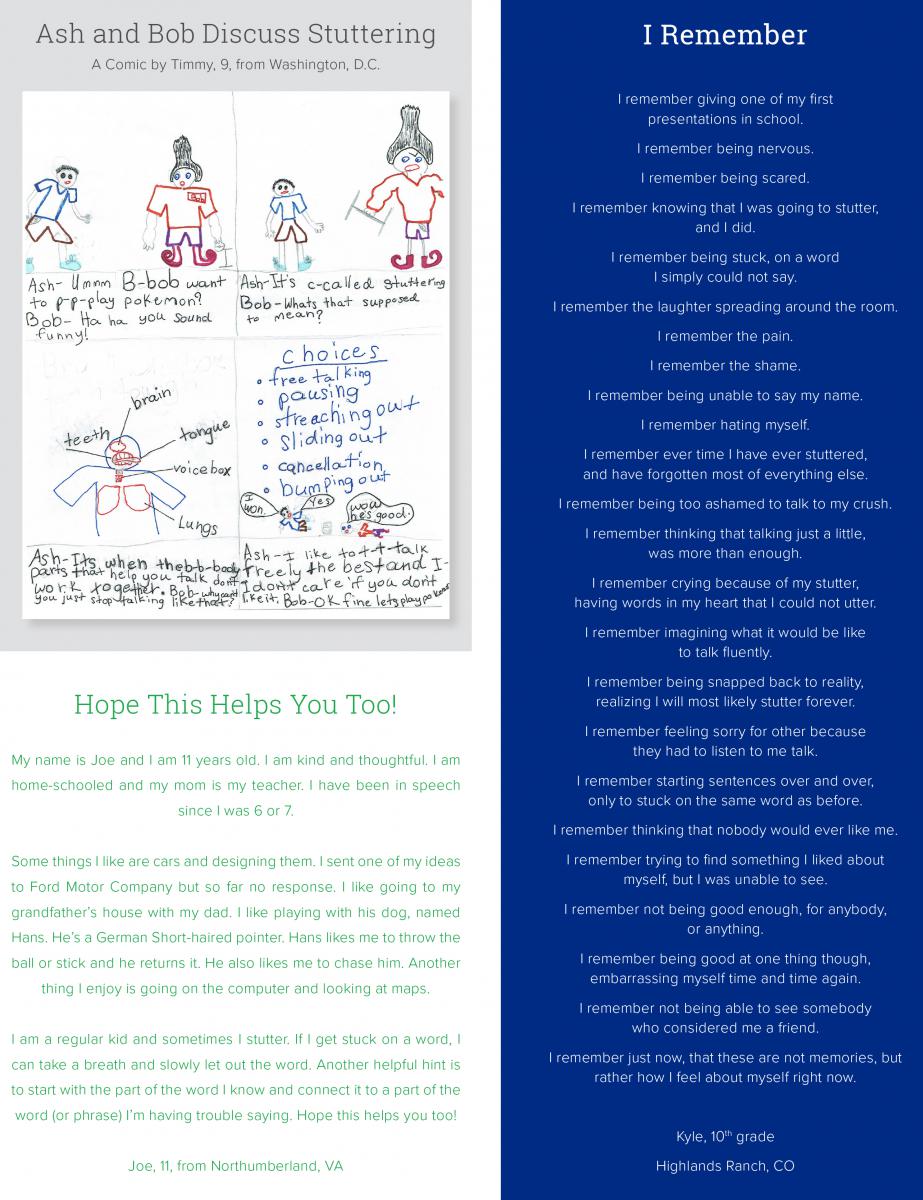 Ash and Bob Discuss Stuttering
A Comic by Timmy, 9, from Washington, D.C.
Bob
Ash- Ummm B-bob want
to p-p-play pokemon?
Bob- Ha ha you sound
funny!
Ash-It's c-called stuttering
Bob-Whats that supposed
to mean?
brain
teeth
tongue
voice box
Lungs
Ash-Its when the b-b-body
parts that help you talk don't
work together. Bob-why cant
you just stop talking like that?
choices
• free talking
• pausing
• streaching out
• sliding out
• cancellation
• bumping out
I
won.
Yes
wow
he's good.
Ash-I like to t-t-talk
freely the best and I-
I dont care if you dont
like it. Bob-OK fine lets play pokemon
Hope This Helps You Too!
My name is Joe and I am 11 years old. I am kind and thoughtful. I am
home-schooled and my mom is my teacher. I have been in speech
since I was 6 or 7.
Some things I like are cars and designing them. I sent one of my ideas
to Ford Motor Company but so far no response. I like going to my
grandfather's house with my dad. I like playing with his dog, named
Hans. He's a German Short-haired pointer. Hans likes me to throw the
ball or stick and he returns it. He also likes me to chase him. Another
thing I enjoy is going on the computer and looking at maps.
I am a regular kid and sometimes I stutter. If I get stuck on a word, I
can take a breath and slowly let out the word. Another helpful hint is
to start with the part of the word I know and connect it to a part of the
word (or phrase) I'm having trouble saying. Hope this helps you too!
Joe, 11, from Northumberland, VA
I Remember
I remember giving one of my first
presentations in school.
I remember being nervous.
I remember being scared.
I remember knowing that I was going to stutter,
and I did.
I remember being stuck, on a word
I simply could not say.
I remember the laughter spreading around the room.
I remember the pain.
I remember the shame.
I remember being unable to say my name.
I remember hating myself.
I remember ever time I have ever stuttered,
and have forgotten most of everything else.
I remember being too ashamed to talk to my crush.
I remember thinking that talking just a little,
was more than enough.
I remember crying because of my stutter,
having words in my heart that I could not utter.
I remember imagining what it would be like
to talk fluently.
I remember being snapped back to reality,
realizing I will most likely stutter forever.
I remember feeling sorry for other because
they had to listen to me talk.
I remember starting sentences over and over,
only to stuck on the same word as before.
I remember thinking that nobody would ever like me.
I remember trying to find something I liked about
myself, but I was unable to see.
I remember not being good enough, for anybody,
or anything.
I remember being good at one thing though,
embarrassing myself time and time again.
I remember not being able to see somebody
who considered me a friend.
I remember just now, that these are not memories, but
rather how I feel about myself right now.
Kyle, 10th grade
Highlands Ranch, CO